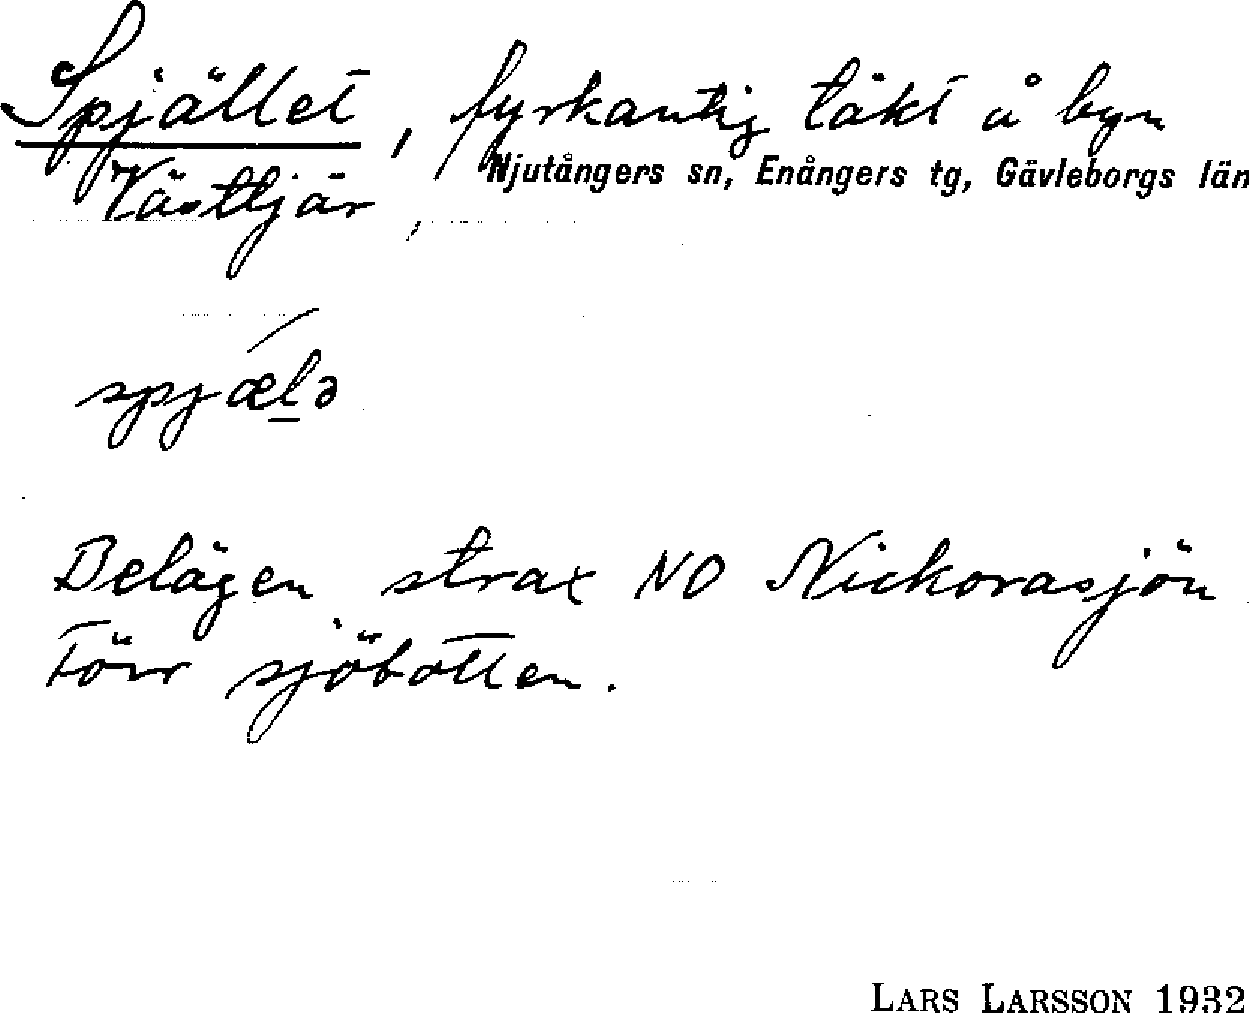 Spjället, fyrkantig täkt å byn
Njutångers sn, Enångers tg, Gävleborgs län
Västtjär,
spjælə
Belägen strax NO Nickorasjön
Förr sjöbotten.
LARS LARSSON 1932